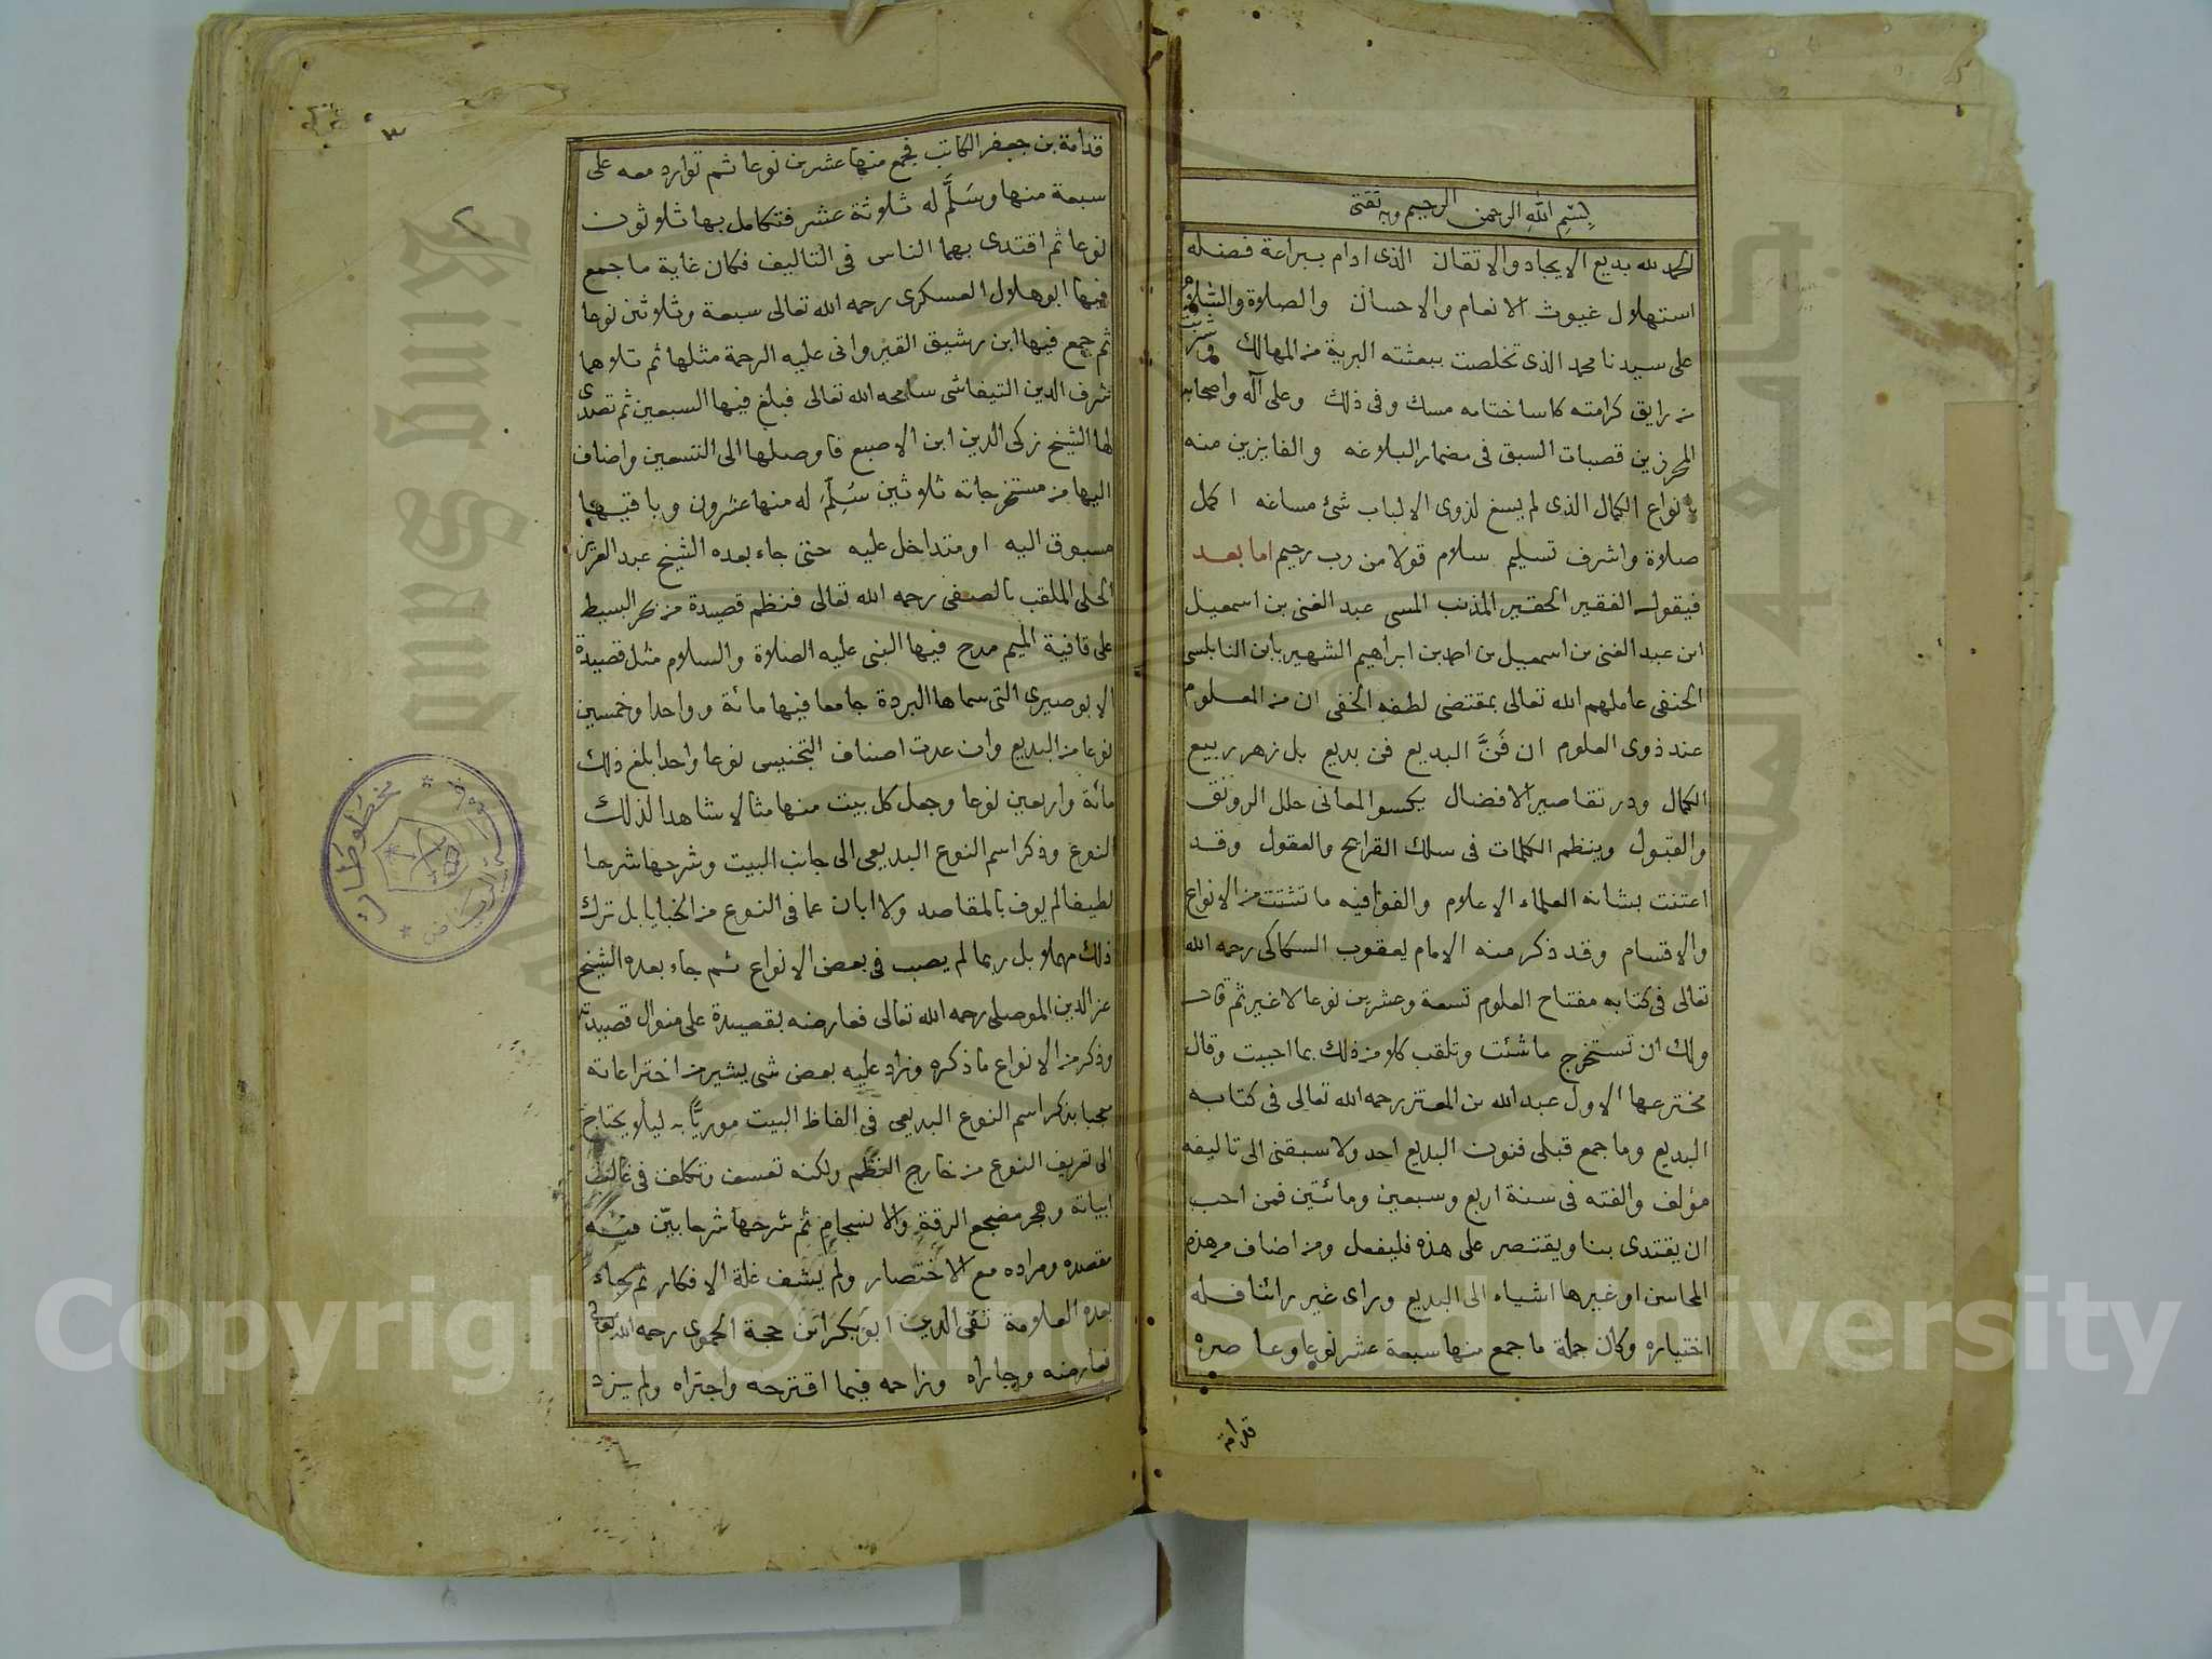 بسم الله الرحمن الرحيم وبه ثقتى
الحمد لله بديع الايجاد والاتقان الذى ادام ببراعة فضله
استهلال غيوث الانعام والاحسان والصلاة والسلام
على سيدنا محمد الذى تخلصت ببعثته البرية من المهالك وشربت
من رايق كرامته كاسا ختامه مسك وفى ذلك وعلى آله واصحابه
المحرزين قصبات السبق فى مضمار البلاغه والفايزين منه
بانواع الكمال الذى لم يسغ لذوى الالباب شئ مساغه اكمل
صلاة واشرف تسليم سلام قولا من رب رحيم اما بعد
فيقول الفقير الحقير المذنب المسى عبد الغنى بن اسمعيل
ابن عبد الغنى بن اسمعيل بن احمد بن ابراهيم الشهير بابن النابلسى
الحنفى عاملهم الله تعالى بمقتضى لطفه الخفى ان من المعلوم
عند ذوى العلوم ان فَنَّ البديع فن بديع بل زهر ربيع
الكمال ودر تقاصير الافضال يكسوا المعانى حلل الرونق
والقبول وينظم الكلمات فى سلك القرايح والعقول وقد
اعتنت بشانه العلماء الاعلام والفوا فيه ما تشتت من الانواع
والاقسام وقد ذكر منه الامام يعقوب السكاكى رحمه الله
تعالى فى كتابه مفتاح العلوم تسعة وعشرين نوعا لا غير ثم قال
ولك ان تستخرج ما شئت وتلقب كلا من ذلك بما احببت وقال
مخترعها الاول عبد الله بن المعتز رحمه الله تعالى فى كتابه
البديع وما جمع قبلى فنون البديع احد ولا سبقنى الى تاليفه
مؤلف والفته فى سنة اربع وسبعين ومائتين فمن احب
ان يقتدى بنا ويقتصر على هذه فليفعل ومن اضاف من هذه
المحاسن او غيرها اشياء الى البديع وراى غير رائنا فله
اختياره وكان جملة ما جمع منها سبعة عشر نوعا وعاصره
قدامة
٣
قدامة بن جعفر الكاتب فجمع منها عشرين نوعا ثم توارد معه على
سبعة منها وسَلَّم له ثلاثة عشر فتكامل بها ثلاثون
نوعا ثم اقتدى بهما الناس فى التاليف فكان غاية ما جمع
فيها ابو هلال العسكرى رحمه الله تعالى سبعة وثلاثين نوعا
ثم جمع فيها ابن رشيق القيروانى عليه الرحمة مثلها ثم تلاهما
شرف الدين التيفاشى سامحه الله تعالى فبلغ فيها السبعين ثم تصدى
لها الشيخ زكى الدين ابن الاصبع فاوصلها الى التسعين واضاف
اليها من مستخرجاته ثلاثين سُلِّمَ له منها عشرون وباقيها
مسبوق اليه او متداخل عليه حتى جاء بعده الشيخ عبد العزيز
الحلى الملقب بالصفى رحمه الله تعالى فنظم قصيدة من بحر البسيط
على قافية الميم مدح فيها النبى عليه الصلاة والسلام مثل قصيدة
الابوصيرى التى سماها البردة جامعا فيها مائة وواحدا وخمسين
نوعا من البديع وان عدت اصناف التجنيس نوعا واحدا بلغ ذلك
مائة واربعين نوعا وجعل كل بيت منها مثالا شاهدا لذلك
النوع وذكر اسم النوع البديعى الى جانب البيت وشرحها شرحا
لطيفا لم يوف بالمقاصد ولا ابان عما فى النوع من الخبايا بل ترك
ذلك مهملا بل ربما لم يصب فى بعض الانواع ثم جاء بعده الشيخ
عز الدين الموصلى رحمه الله تعالى فعارضه بقصيدة على منوال قصيدته
وذكر من الانواع ما ذكره وزاد عليه بعض شى يشير من اختراعاته
معجبا بذكر اسم النوع البديعى فى الفاظ البيت موريًّا به ليلا يحتاج
الى تعريف النوع من خارج النظم ولكنه تعسف وتكلف فى غالب
ابياته وهجر مضجع الرقة والانسجام ثم شرحها شرحا بيّن فيه
مقصده ومراده مع الاختصار ولم يشف غلة الافكار ثم جاء
بعده العلامة تقى الدين ابو بكر ابن حجة الحموى رحمه الله تعالى
فعارضه وجاراه وزاحمه فيما اقترحه واجتراه ولم يزد
مخطوطات
الرياض
Copyright © King Saud University